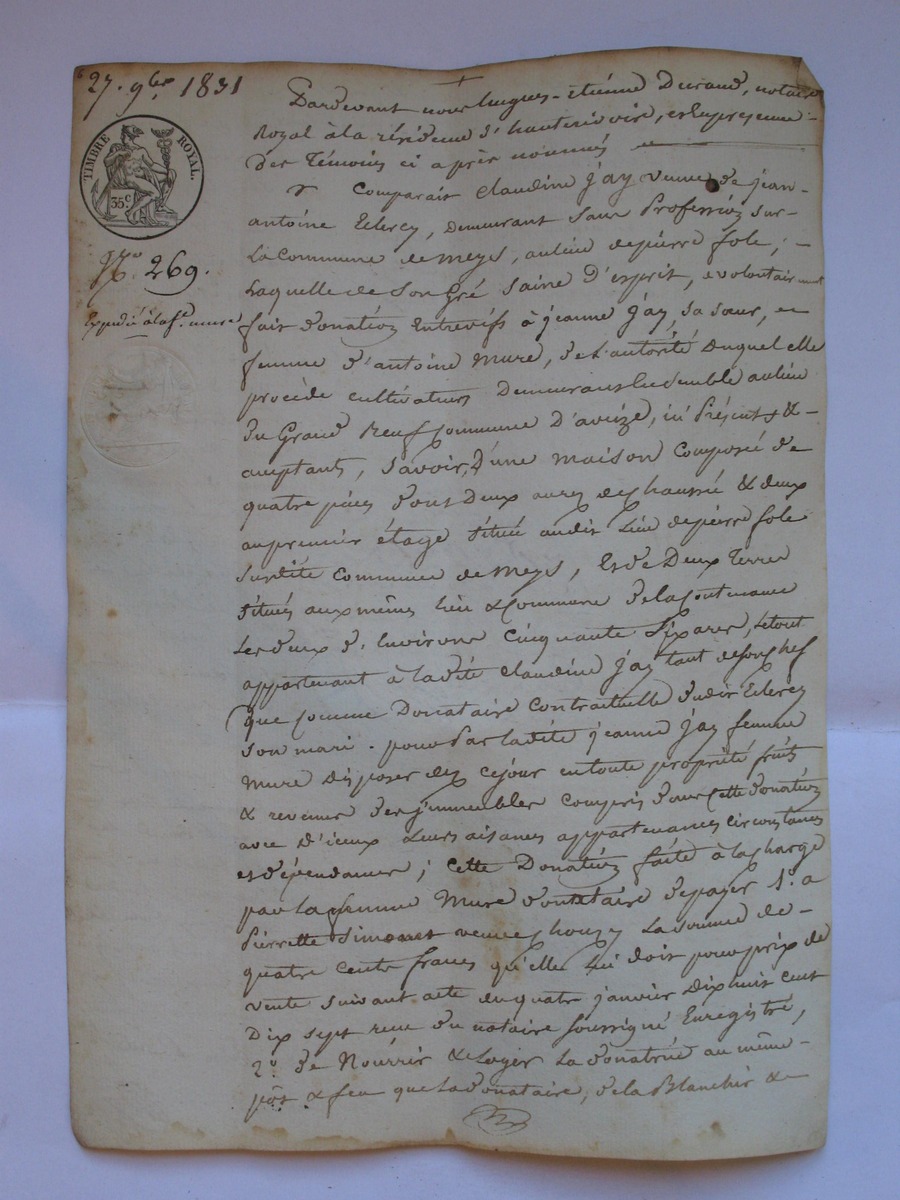 27. 9bre 1831
TIMBRE ROYAL.
35c
No 269.
Expédié à la fe mure
Pardevant nous hugues-étienne Durand, notaire
Royal à la résidence d'hauterivoire, et en présence
Des témoins ci après nommés
Comparait Claudine jay veuve de jean-
antoine Leclercq, demeurant sans Profession sur
La Commune de Meys, au lieu de pierre fole ;
Laquelle de Son Gré saine D'esprit, & volontairement
fait donation Entrevifs à jeanne jay, sa sœur, et
femme d'antoine mure, de L'autorité duquel elle
procède cultivateurs Demeurans Ensemble au lieu
du Grand Neuf Commune D'aveize, ici Présents &
acceptants, Savoir, D'une maison Composée de
quatre pièces dont Deux au rez de chaussée & deux
au premier étage située audit Lieu de pierre fole
Susdite Commune de Meys, Et de Deux Terres
situées aux mêmes Lieu & Commune de la Contenance
Les deux d'Environs Cinquante Six ares, Le tout
appartenant à ladite Claudine jay tant de son chef
que Comme Donataire Contractuelle dudit
son mari. pour Par ladite jeanne jay femme
mure Disposer dès ce jour en toute propriété fruits
& revenus des immeubles Compris dans Cette donation
avec D'iceux Leurs aisances appartenances circonstances
et dépendances ; Cette Donation faite à la charge
par la femme Mure donataire de payer 1o a
Pierrette Simonet veuve La Somme de
quatre cents francs qu'elle Lui doit pour prix de
vente suivant acte du quatre janvier Dix huit cent
Dix sept reçu du notaire soussigné Enregistré,
2o de Nourrir & Loger La donatrice au même
pôt & feu que La donataire, de la Blanchir &